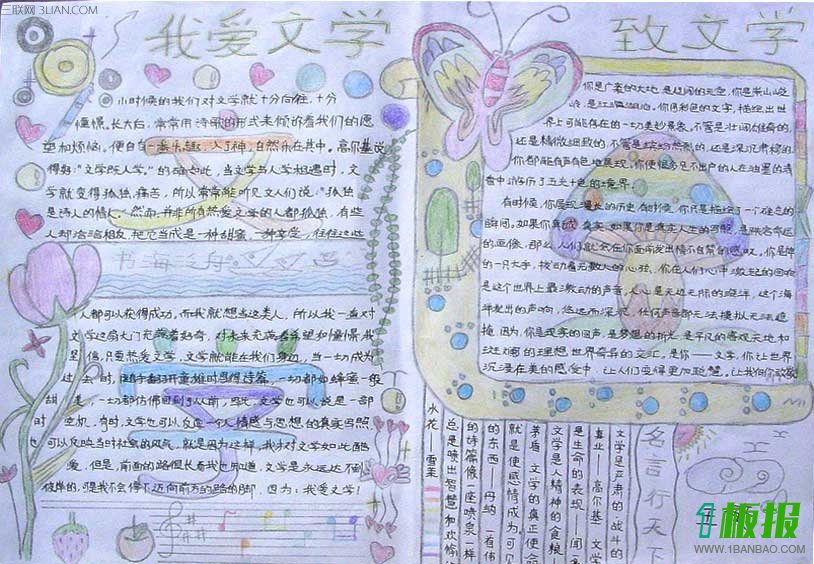 三联网 3LIAN.COM
我爱文学
小时候的我们对文学就十分向往，十分
憧憬。长大白，常常用诗歌的形式来倾诉着我们的愿
望和烦恼。便自
入了神，自然乐在其中。高尔基说
得好："文学既人学。"的确如此，当文学与人学相遇时，文
学就变得孤独、痛苦，所以常常能听见文人们说："孤独
是诗人的情人。"然而，并非所有热爱文学的人都孤独，有些
人却恰恰相反，把它当成是一种甜蜜，一种交堂，往往这些
书海之舟
人都可以获得成功。而我就想当这类人，所以我一直对
文学这扇大门充满着好奇，对未来充满着希望和憧憬。我
坚信，只要热爱文学，文学就能在我们身边，当一切成为
过去时，随手翻开童稚时思想诗篇，一切都如蜂蜜一般
甜美，一切都仿佛回到了从前，因此，文学也可以说是一部
时空机，奇时，文学也可以反应一个人情感与思想的真实写照
也可以反映当时社会的风气，就是因为这样，我才对文学如此酷
爱，但是，前面的路很长着我也知道，文学是永远达不到
彼岸的，可是我不会停下迈向前方的路的脚，因为：我爱文学！
致文学
你是广袤的大地，是辽阔的天空，你是崇山峻
岭，是江河湖泊。你用彩色的文字，描绘出世
界上可能存在的一切美妙景象，不管是壮阔雄奇的，
还是精微细致的，不管是缤纷热烈的，还是深沉肃穆的，
你都能有声有色地展现。你使很多足不出户的人在油墨的清
香中游历了五光十色的境界。
有时候，你展现漫长的历史，有时候，你只是描绘了一个难忘的
瞬间。如果你真诚，真实，如果你是真实人生的写照，是跌宕命运
的画像，那么，人们就会在你面前发出情不自禁的感叹，你是神
的一只大手，拨动着无数人的心弦。你在人们心中激起的回响
是这个世界上最激动的声音，人心是无边无际的海洋，这个海
洋发出的声响，悠远而深沉，任何声音都无法模拟无法遮
掩，因为，你是现实的回声，是梦想的折光，是平凡的客观天地和
斑斓的理想世界奇异的交汇，是你——文学，你让世界
沉浸在美的感觉中，让人们变得更加聪慧，
名言行天下
文学是严肃的战斗的
事业——高尔基 文学
是生命的表现——闻
文学是人精神的食粮——
茅盾 文学的真正使命
就是使感情成为可见
的东西——丹纳 有伟
的诗篇像一座喷泉一样
总是喷出智慧和欢愉的
水花——雪莱
1板报
WWW.1BANBAO.COM